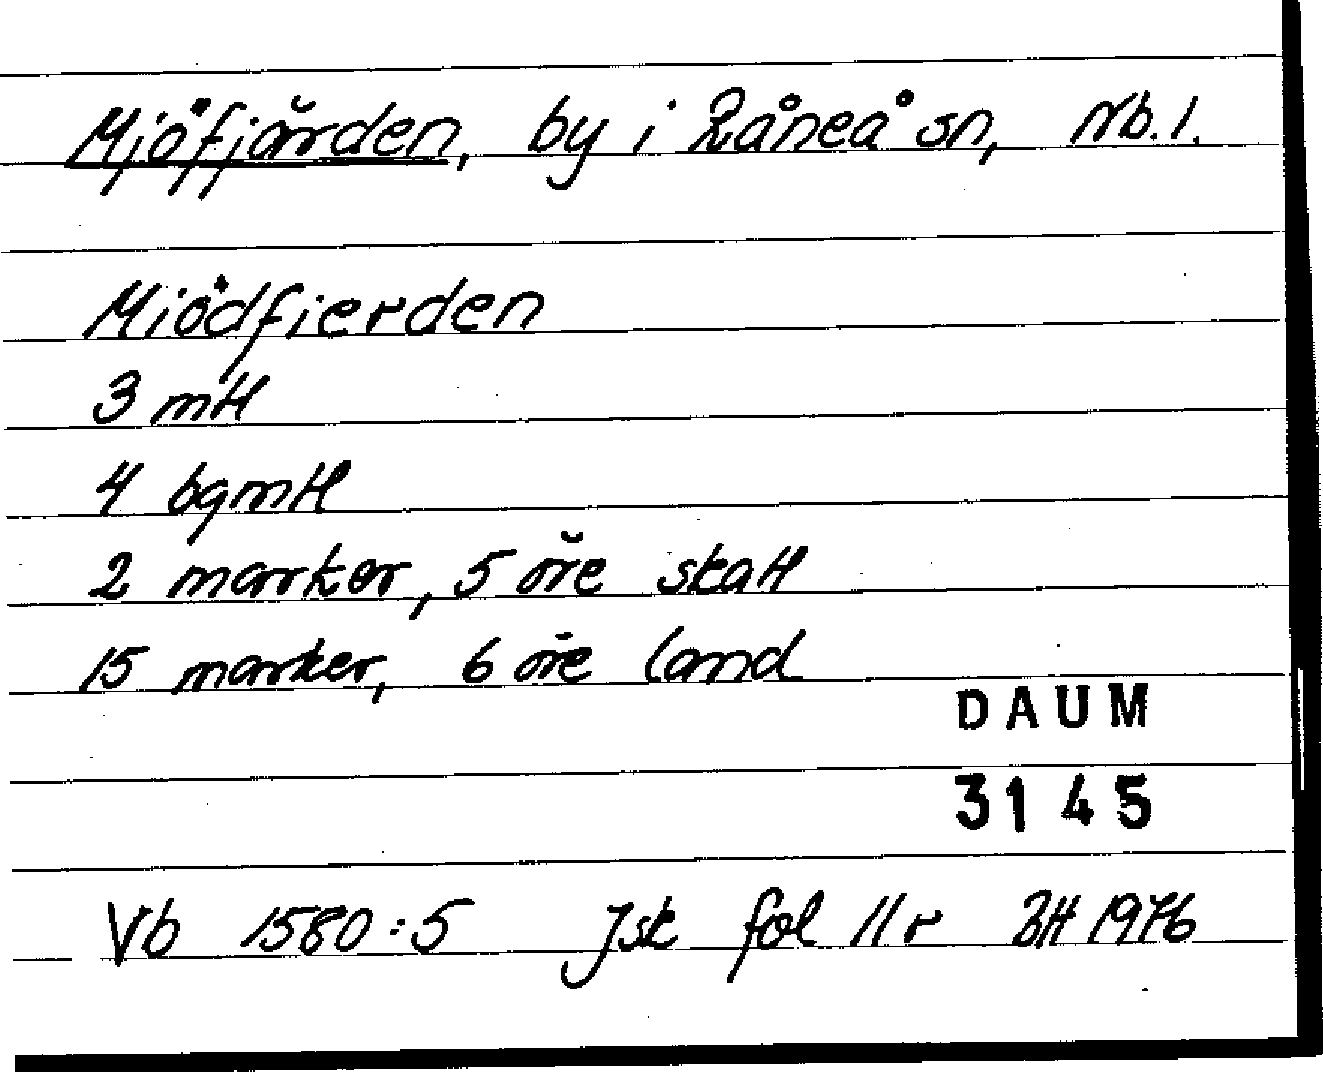 Mjöfjärden, by i Råneå sn, Nb.l.
Miödfierden
3 mtl
4 bgmtl
2 marker, 5 öre skatt
15 marker, 6 öre land
DAUM
3145
Vb 1580:5 Jsk fol 11r BH 1976